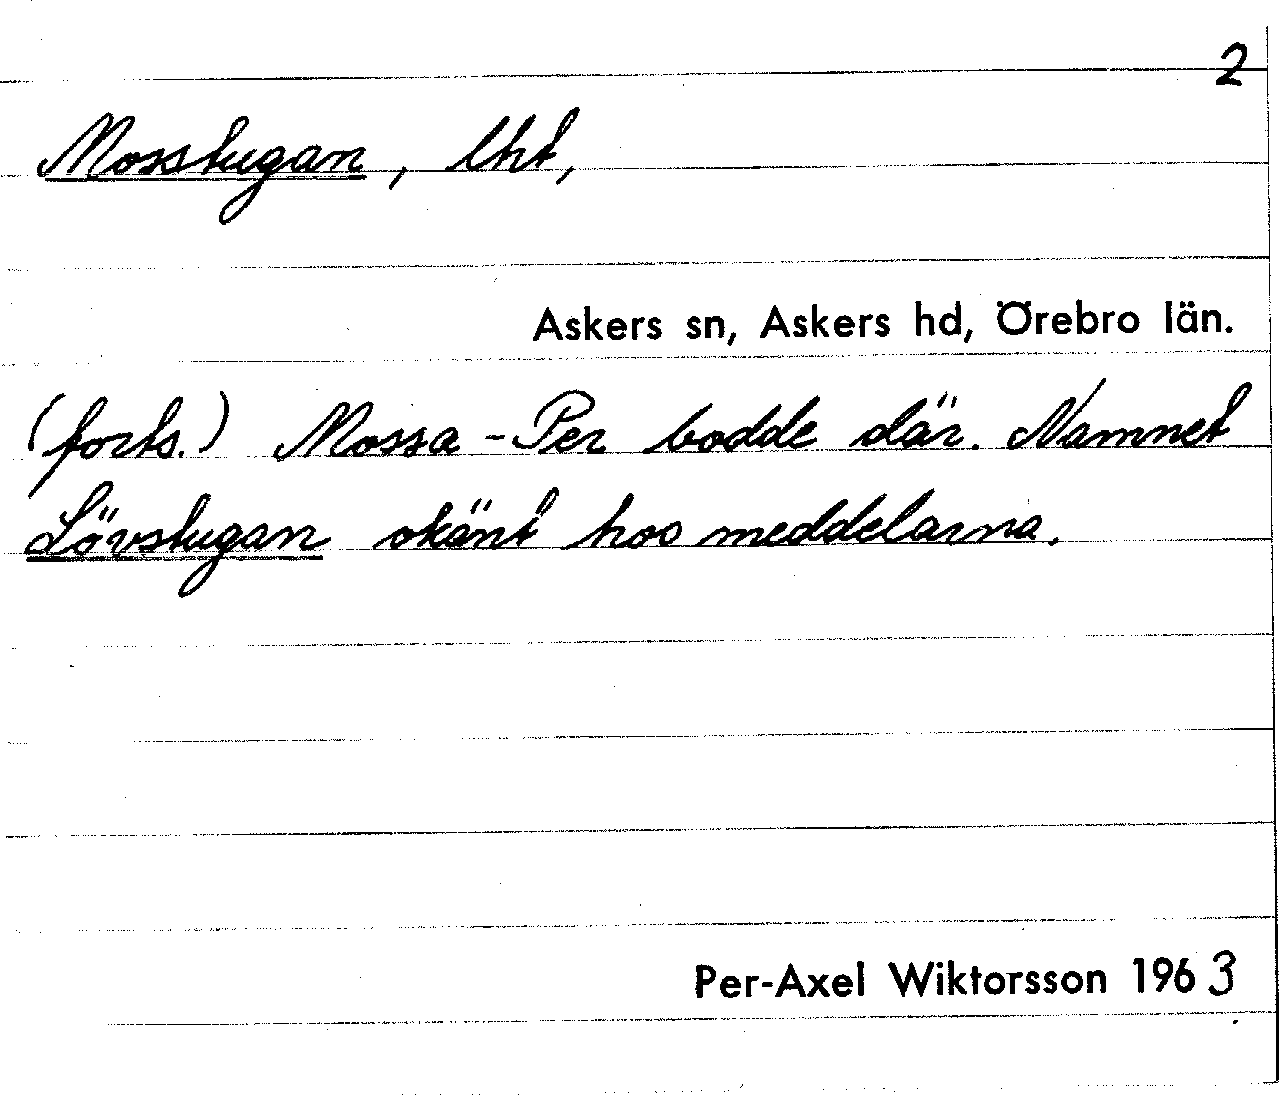 2
Mosstugan, lht,
Askers sn, Askers hd, Örebro län.
(forts.) Mossa-Per bodde där. Namnet
Lövstugan okänt hos meddelarna.
Per-Axel Wiktorsson 1963